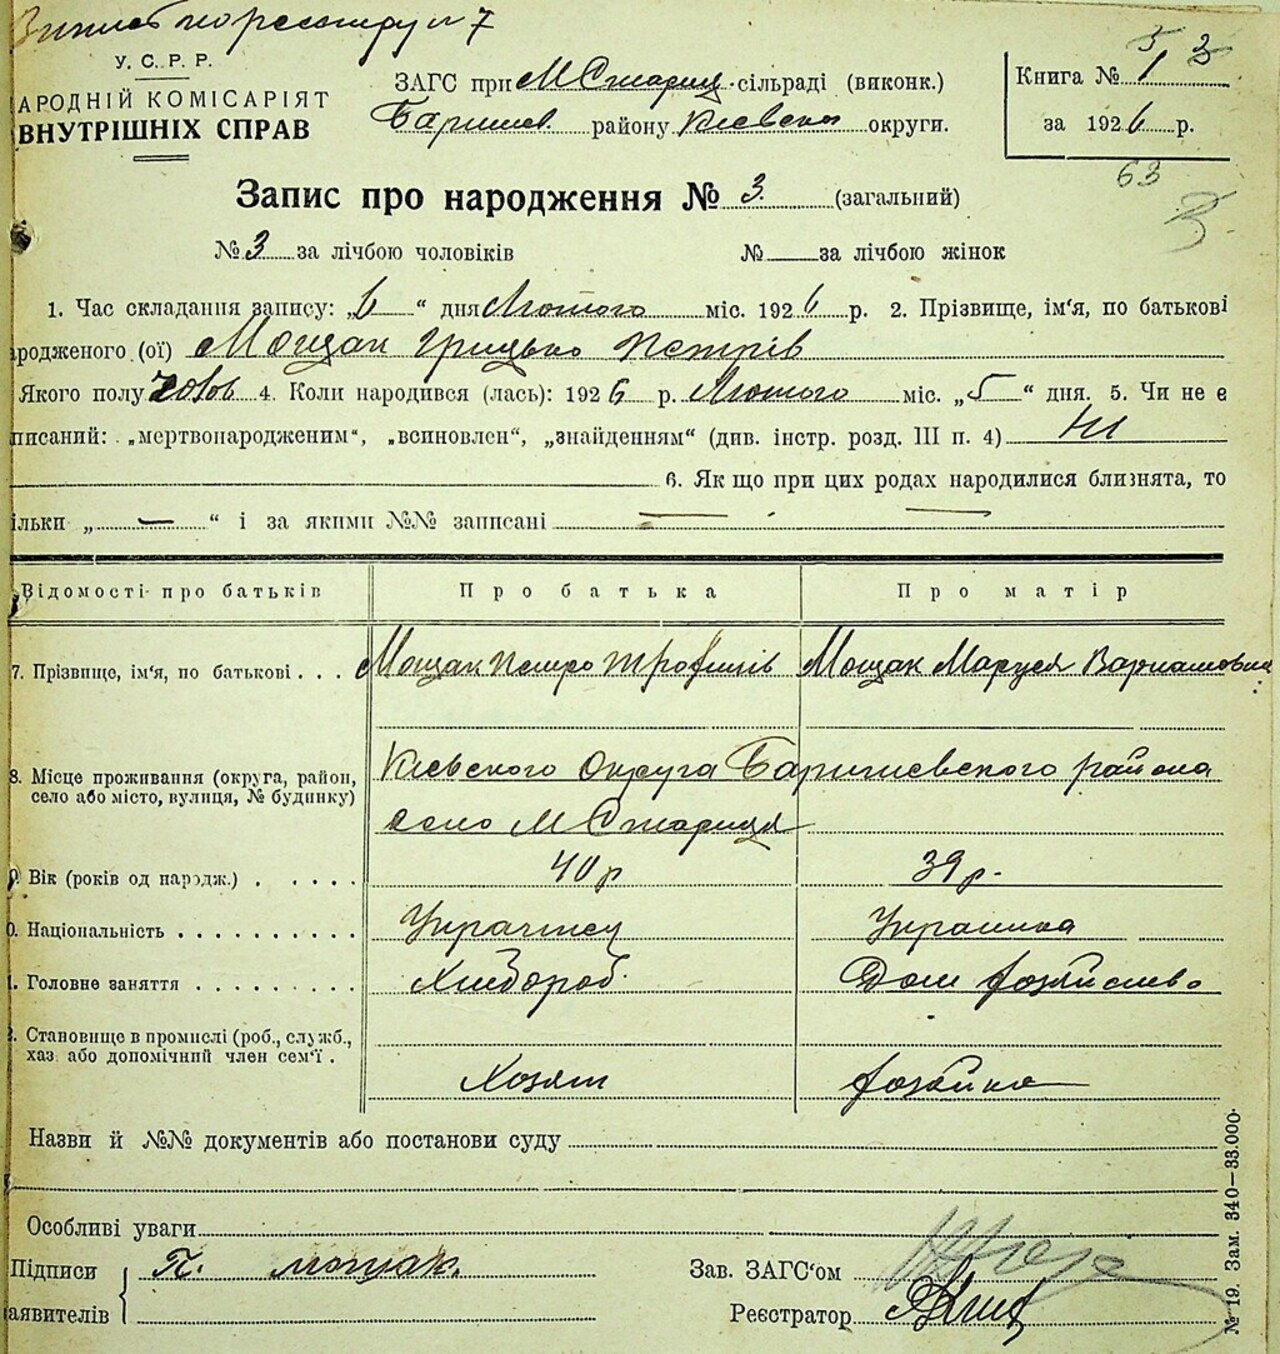 по реестру № 7
У. С. Р. Р.
АРОДНІЙ КОМІСАРІЯТ
ВНУТРІШНІХ СПРАВ
ЗАГС при М Стариц. сільраді (виконк.)
Баришев. району Києвской округи.
Книга № 1
за 1926 р.
5 3
63
3
Запис про народження № 3. (загальний)
№ 3 за лічбою чоловіків № за лічбою жінок
1. Час складання запису: „6“ дня Лютого міс. 1926 р. 2. Прізвище, ім‘я, по батькові
ародженого (ої) Мощак Грицько Петрів
Якого полу чолов 4. Коли народився (лась): 1926 р. Лютого міс. „5“ дня. 5. Чи не є
писаний: „мертвонародженим“, „всиновлен“, „знайденням“ (див. інстр. розд. III п. 4) Ні
6. Як що при цих родах народилися близнята, то
ільки „ — “ і за якими №№ записані — —
Відомості про батьків Про батька Про матір
7. Прізвище, ім‘я, по батькові . . . Мощак Петро Трофимів Мощак Маруся
8. Місце проживання (округа, район, село або місто, вулиця, № будинку) Києвского Округа Баришевского района
село М Стариця
9. Вік (років од народж.) . . . . . 40 р 39 р.
0. Національність . . . . . . . . . . Украинец Украинка
1. Головне заняття . . . . . . . . . Хлебороб. Дом хозяйство
2. Становище в промислі (роб., служб., хаз або допомічний член сем‘ї . Хозяин хозяйка
Назви й №№ документів або постанови суду
Особливі уваги
Підписи П. мощак.
аявителів
Зав. ЗАГС‘ом
Реєстратор
№ 19. Зам. 340—33.000.